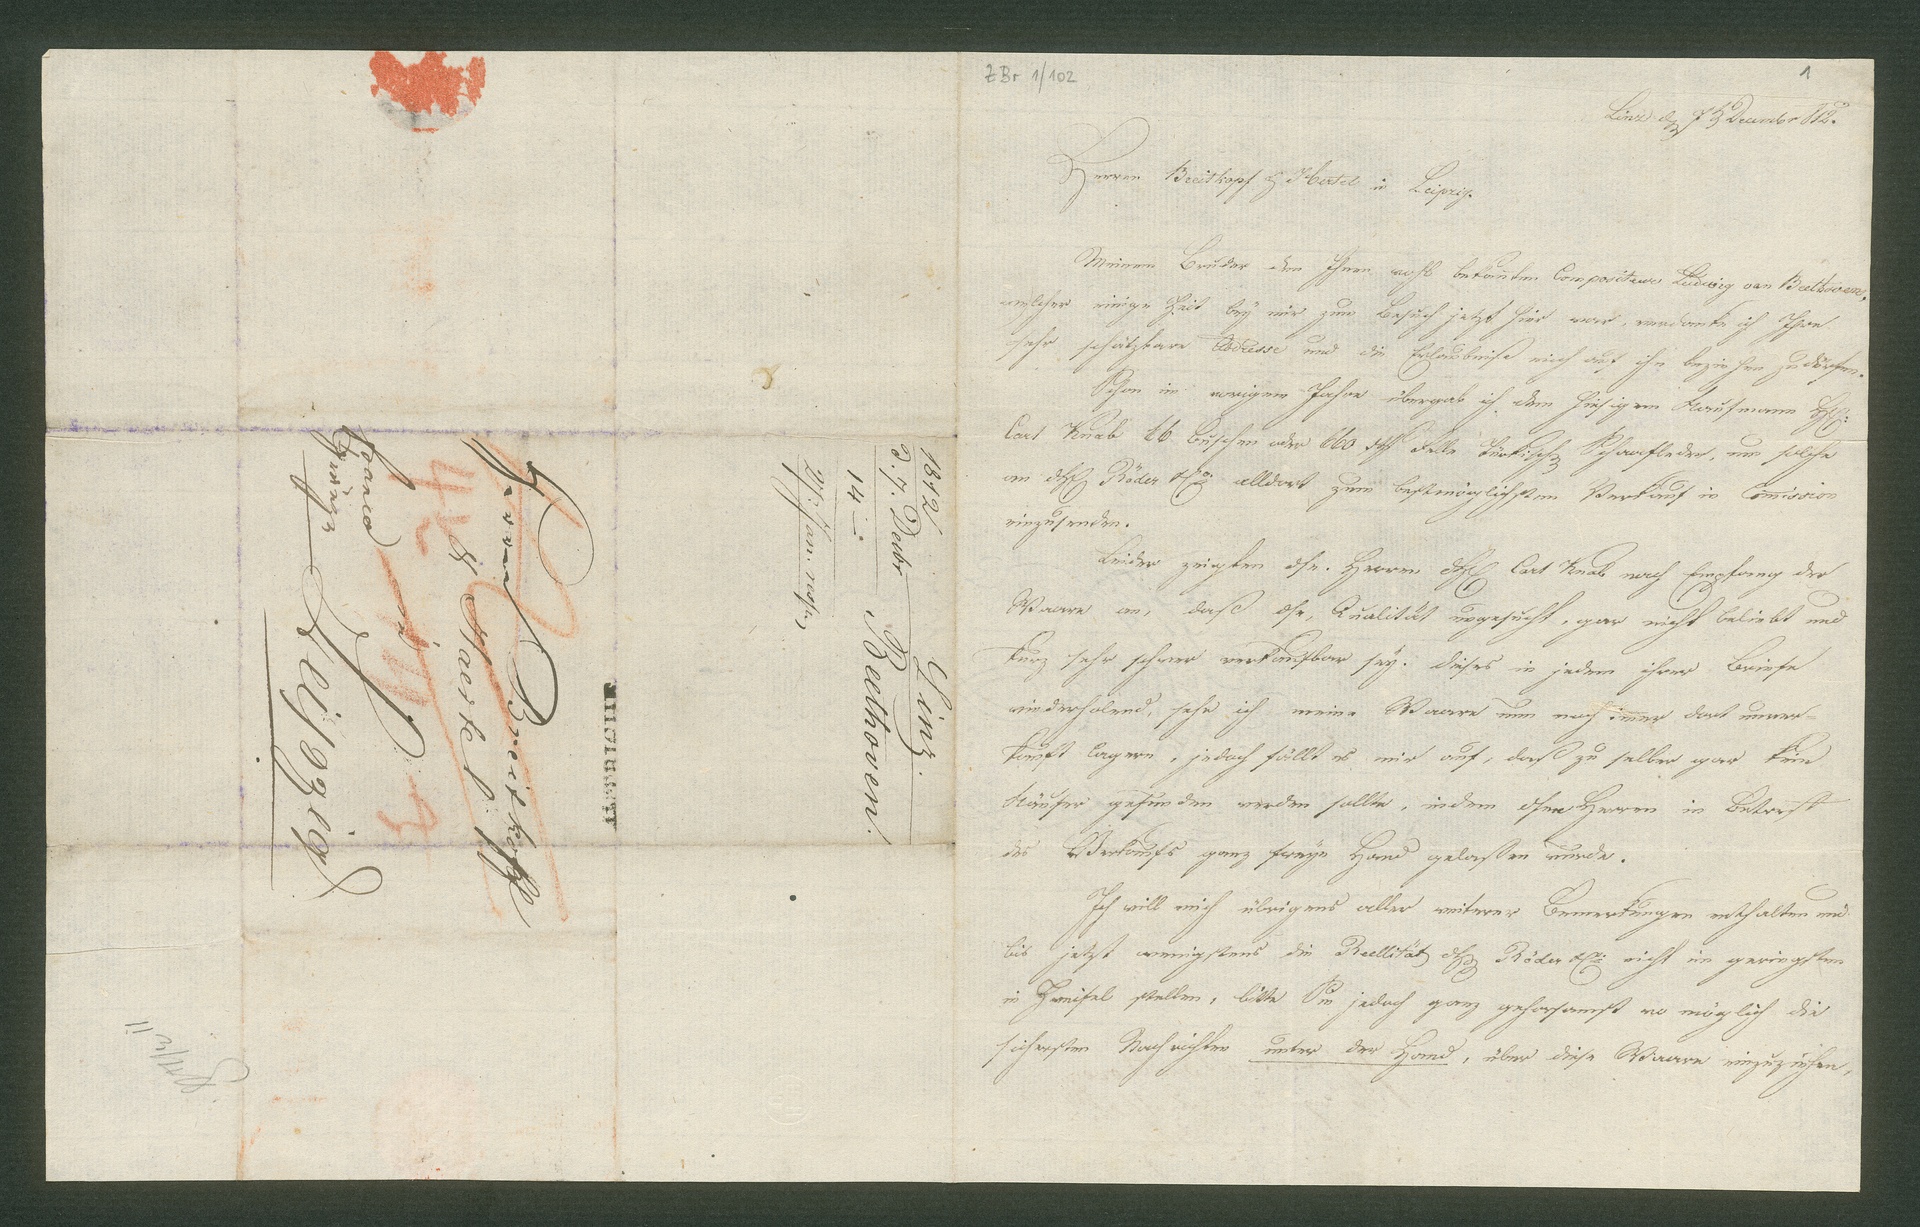 ZBr 1/102
1
Linz den 7 December 812.
Herren Breitkopf & Hertel in Leipzig.
Meinem Bruder den Ihnen wohl bekannten Compositeur Ludwig van Beethoven,
welcher einige Zeit bey mir zum Besuch jetzt hier war, verdanke ich Ihre
sehr schätzbare Addresse und die Erlaubniß mich auf ihn beziehen zu dürfen.
Schon im vorigen Jahre übergab ich dem hiesigen Kaufmann
Carl Knab 16 Buschen oder 660 Felle türkisches Schaafleder, um solche
an Röder alldort zum bestmöglichsten Verkauf in Comission
einzusenden.
Leider zeigten dse. Herren Carl Knab nach Empfang der
Waare an, daß dse. Qualität ungesucht, gar nicht beliebt und
kurz sehr schwer verkaufbar sey: dieses in jedem ihrer Briefe
wiederholend, sehe ich meine Waare nun noch immer dort unver=
kauft lagern, jedoch fällt es mir auf, daß zu selber gar kein
Käufer gefunden werden sollte, indem Herren in Betreff
des Verkaufs ganz freye Hand gelassen wurde.
Ich will mich übrigens aller weiterer Bemerkungen enthalten und
bis jetzt wenigstens die Reellität Röder nicht im geringsten
in Zweifel stellen, bitte Sie jedoch ganz gehorsamst wo möglich die
sichersten Nachrichten unter der Hand, über diese Waare einzuziehen,
1812
d. 7. Decbr Linz.
14 — Beethoven.
27. Jan.
Herrn Breitkopf
& Haertel
in
Leipzig
franco